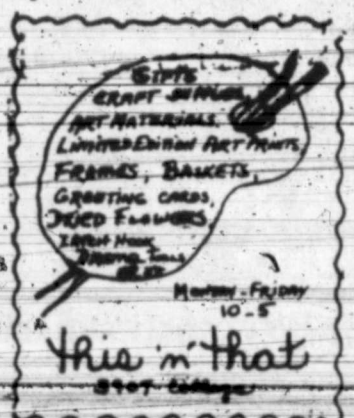 GIFTS
CRAFT SUPPLIES,
ART MATERIALS,
LIMITED EDITION ART PRINTS,
FRAMES, BASKETS,
GREETING CARDS,
DRIED FLOWERS,
LATCH HOOK
MONDAY - FRIDAY
10 - 5
this 'n' that
College